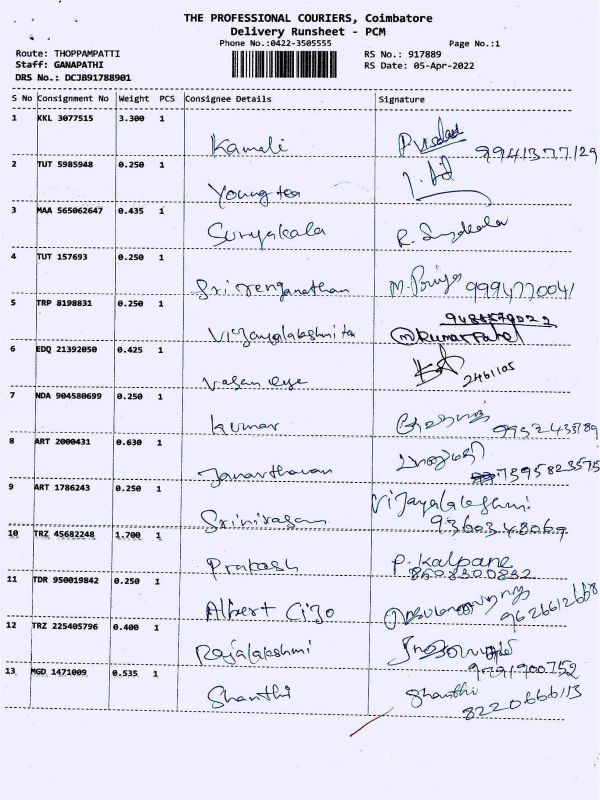 THE PROFESSIONAL COURIERS, Coimbatore
Delivery Runsheet - PCM
Phone No.:0422-3505555
Page No.:1
Route: THOPPAMPATTI
RS No.: 917889
Staff: GANAPATHI
RS Date: 05-Apr-2022
DRS No.: DCJB91788901
S No Consignment No Weight PCS Consignee Details Signature
1 KKL 3077515 3.300 1
Kamali 9941377129
2 TUT 5985948 0.250 1
Young tea
3 MAA 565062647 0.435 1
Suryakala R.
4 TUT 157693 0.250 1
Srirenganathan M. Priya 9994770041
5 TRP 8198831 0.250 1
Vijayalakshmi Kumar Patel
6 EDQ 21392050 0.425 1
Vasan eye 2461105
7 NDA 904580699 0.250 1
Kumar
8 ART 2000431 0.630 1
Janarthanan 7395823575
9 ART 1786243 0.250 1
Srinivasan Vijayalakshmi
9360348069
10 TRZ 45682248 1.700 1
Prakash P. Kalpane
8508300832
11 TDR 950019842 0.250 1
Albert Cijo 9626612668
12 TRZ 225405796 0.400 1
Rajalakshmi
9791900752
13 MGD 1471009 0.535 1
Shanthi Shanthi
8220666113